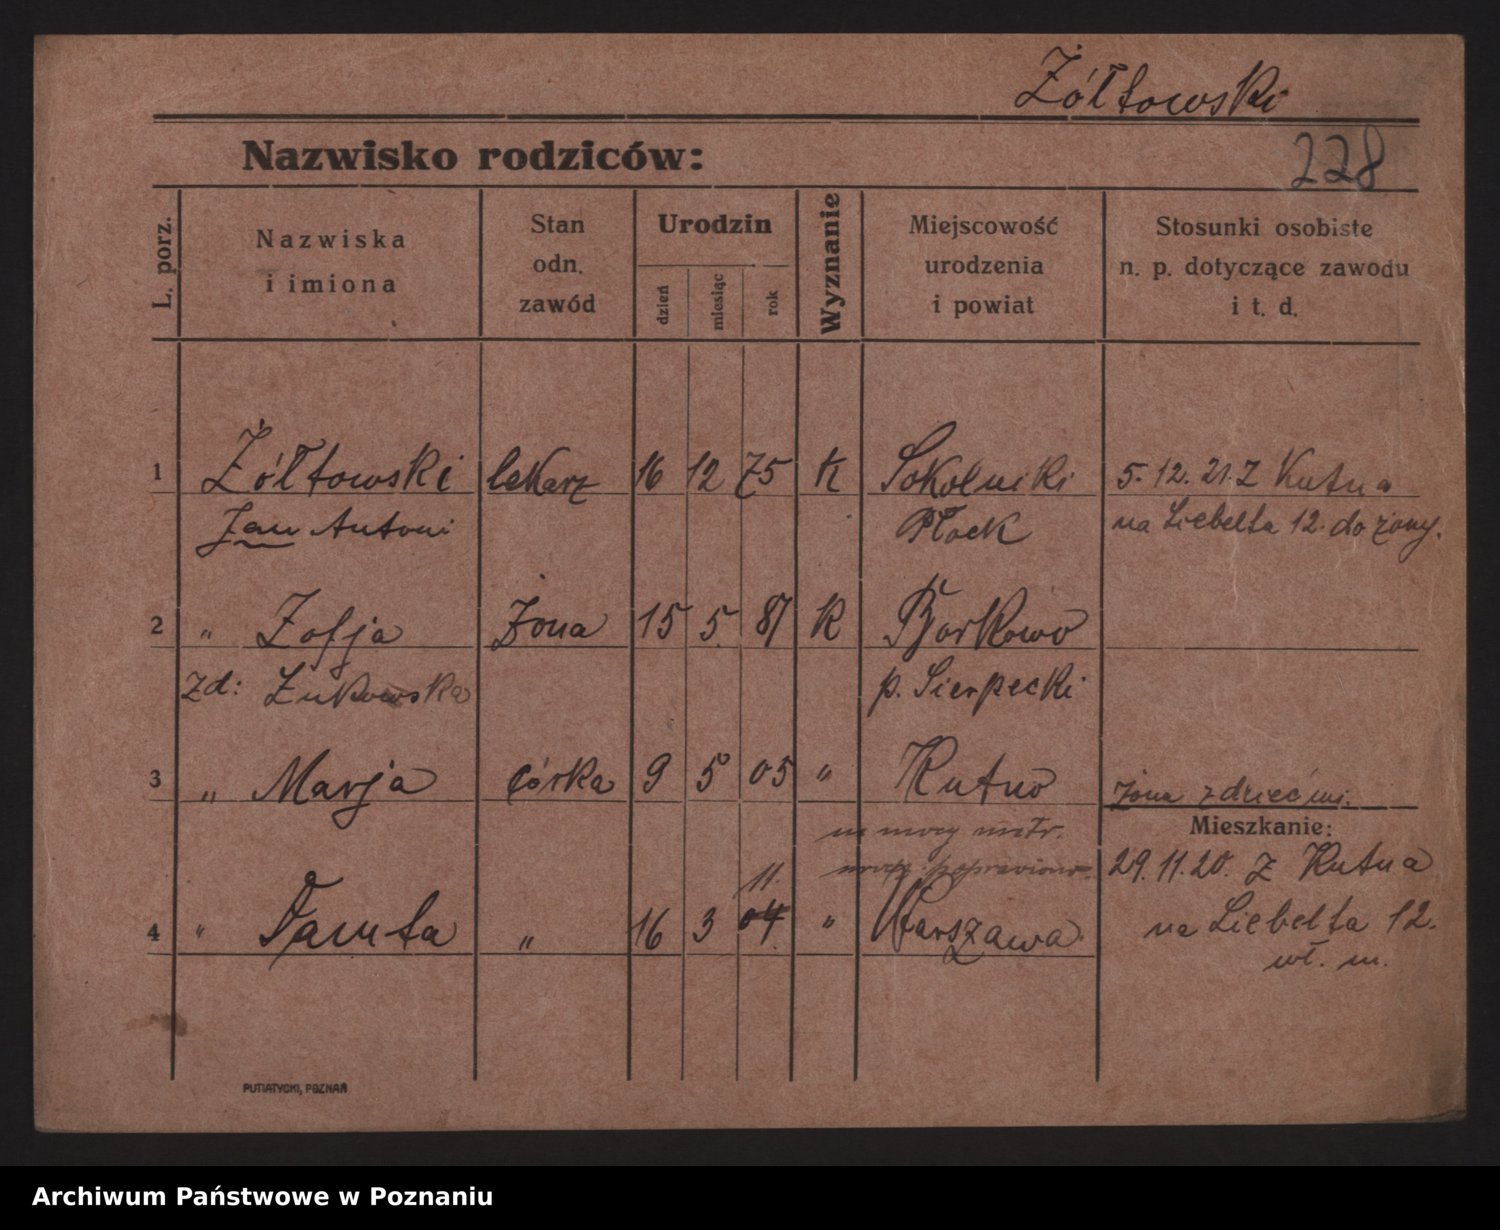 Żółtowski
Nazwisko rodziców:
228
L. porz.
Nazwiska
i imiona
Stan
odn.
zawód
Urodzin
dzień
miesiąc
rok
Wyznanie
Miejscowość
urodzenia
i powiat
Stosunki osobiste
n. p. dotyczące zawodu
i t. d.
1 Żółtowski lekarz 16 12 75 k Sokolniki 5. 12. 21. Z Kutna
Jan Antoni Płock na Liebelta 12. do żony.
2 " Zofja żona 15 5. 87 k Borkowo
zd: Żukowska p. Sierpecki
3 " Marja córka 9 5 05 " Kutno żona z dziećmi.
Mieszkanie:
na mocy metr.
poprawiono. 29. 11. 20. Z Kutna
11.
4 " Danuta " 16 3 04 " Warszawa na Liebelta 12.
wł. m.
PUTIATYCKI, POZNAŃ
Archiwum Państwowe w Poznaniu